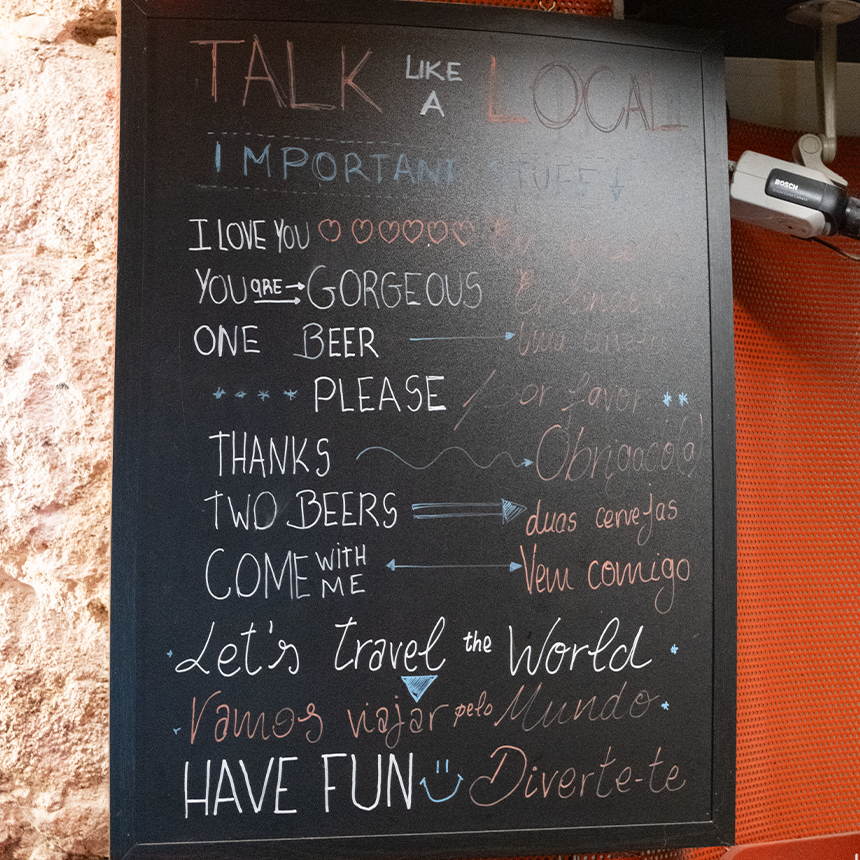 TALK LIKE A LOCAL
IMPORTANT STUFF
I LOVE YOU
YOU are GORGEOUS
ONE BEER
PLEASE Por favor
THANKS Obrigado(a)
TWO BEERS duas cervejas
COME WITH ME Vem comigo
Let's travel the World
Vamos viajar pelo Mundo
HAVE FUN Diverte-te
BOSCH